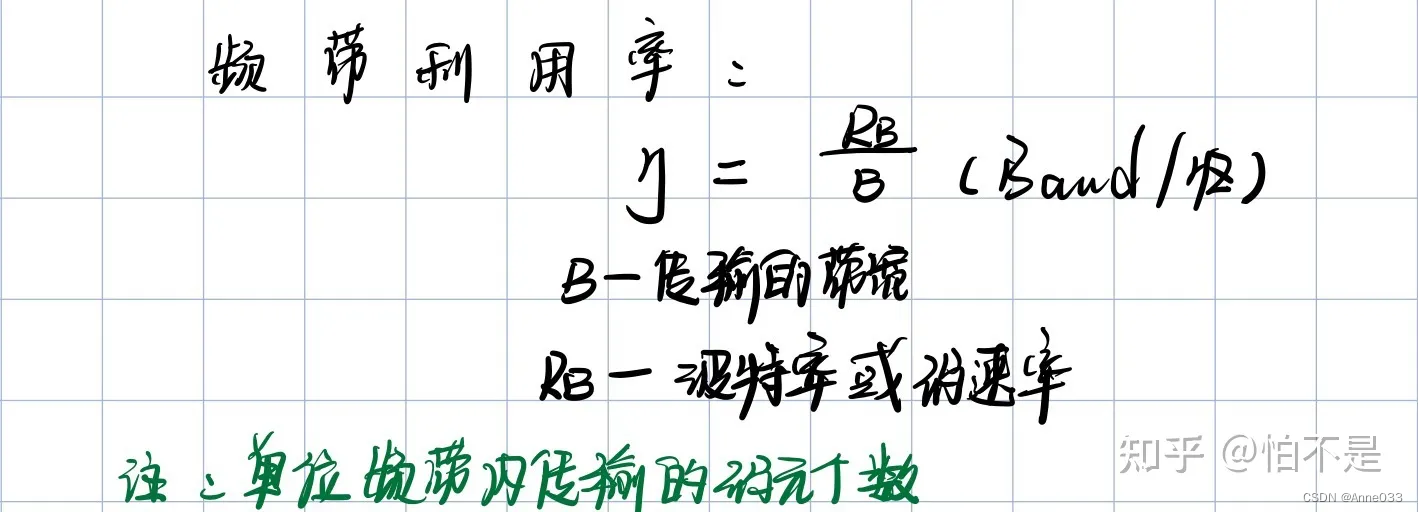 频带利用率：
η = RB/B (Baud/Hz)
B—传输的带宽
RB—波特率或码速率
注：单位频带内传输的码元个数
知乎 @怕不是
CSDN @Anne033